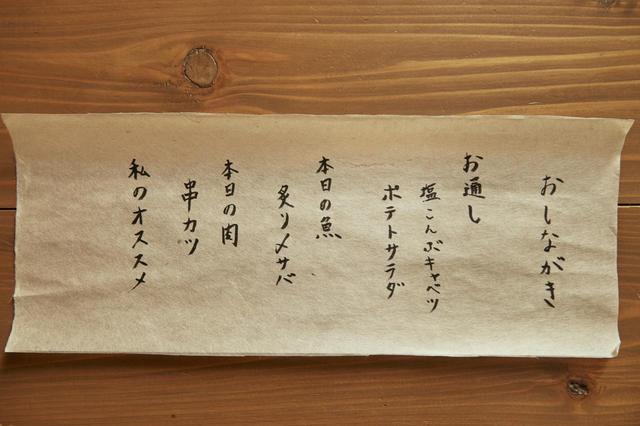 おしながき
お通し
塩こんぶキャベツ
ポテトサラダ
本日の魚
炙りメサバ
本日の肉
串カツ
私のオススメ